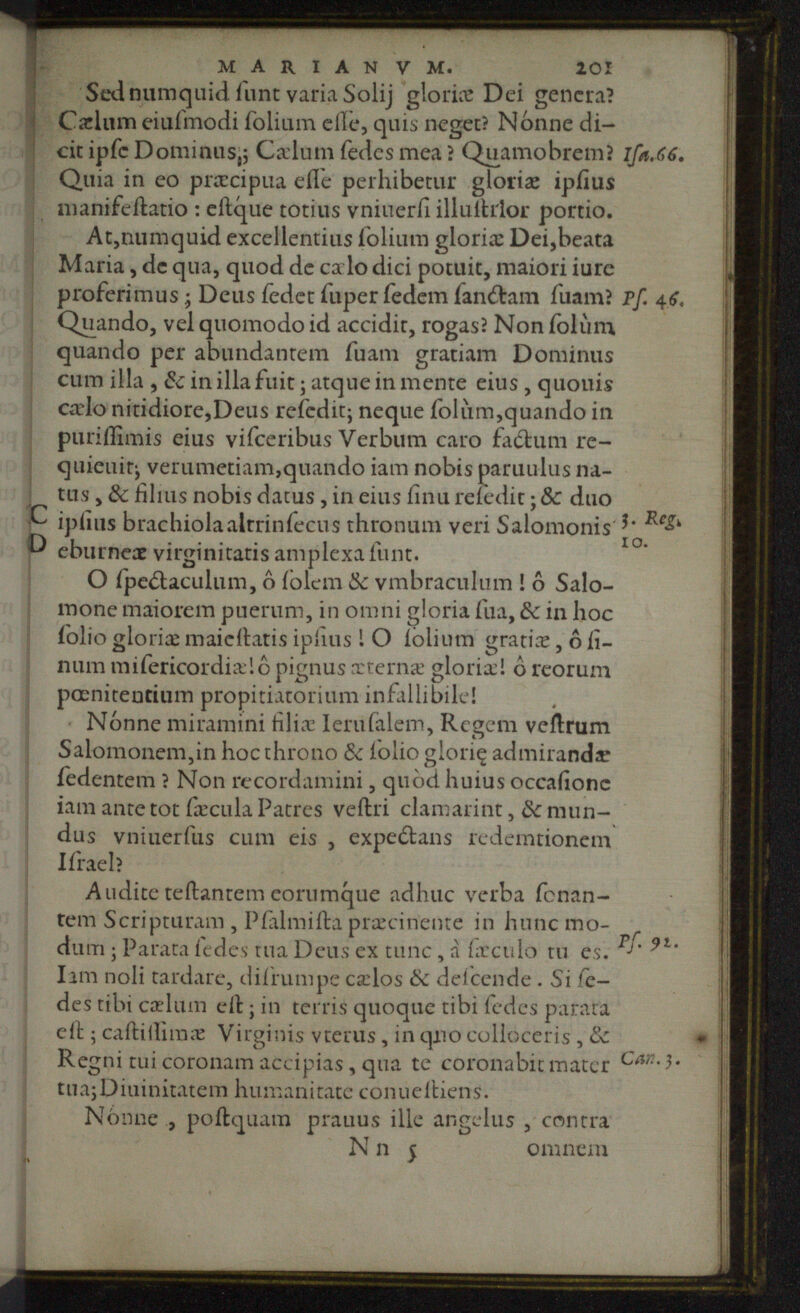 MARIANVM. 201
Sed numquid ſunt varia Solij gloriæ Dei genera?
Cælum eiuſmodi ſolium eſſe, quis neget? Nónne di-
cit ipſe Dominus,; Cælum ſedes mea? Quamobrem? Iſa.66.
Quia in eo præcipua eſſe perhibetur gloriæ ipſius
manifeſtatio : eſtque totius vniuerſi illuſtrior portio.
At,numquid excellentius ſolium gloriæ Dei,beata
Maria, de qua, quod de cælo dici potuit, maiori iure
proferimus ; Deus ſedet ſuper ſedem ſanctam ſuam? Pſ. 46.
Quando, vel quomodo id accidit, rogas? Non ſolùm
quando per abundantem ſuam gratiam Dominus
cum illa , & in illa fuit ; atque in mente eius , quouis
cælo nitidiore,Deus reſedit; neque ſolùm,quando in
puriſſimis eius viſceribus Verbum caro factum re-
quieuit; verumetiam,quando iam nobis paruulus na-
tus , & filius nobis datus , in eius ſinu reſedit ; & duo
C ipſius brachiola altrinſecus thronum veri Salomonis 3. Reg.
D eburneæ virginitatis amplexa ſunt. 10.
O ſpectaculum, ô ſolem & vmbraculum ! ô Salo-
mone maiorem puerum, in omni gloria ſua, & in hoc
ſolio gloriæ maieſtatis ipſius ! O ſolium gratiæ , ô ſi-
num miſericordiæ! ô pignus æternæ gloriæ! ô reorum
pœnitentium propitiatorium infallibile!
Nónne miramini filiæ Ieruſalem, Regem veſtrum
Salomonem,in hoc throno & ſolio glorię admirandæ
ſedentem ? Non recordamini , quòd huius occaſione
iam ante tot ſæcula Patres veſtri clamarint, & mun-
dus vniuerſus cum eis , expectans redemtionem
Iſrael?
Audite teſtantem eorumque adhuc verba ſonan-
tem Scripturam , Pſalmiſta præcinente in hunc mo-
dum ; Parata ſedes tua Deus ex tunc , à ſæculo tu es. Pſ. 92.
Iam noli tardare, diſrumpe cælos & deſcende . Si ſe-
des tibi cælum eſt ; in terris quoque tibi ſedes parata
eſt ; caſtiſſimæ Virginis vterus , in quo colloceris , &
Regni tui coronam accipias , qua te coronabit mater Can. 3.
tua;Diuinitatem humanitate conueſtiens.
Nónne , poſtquam prauus ille angelus , contra
Nn 5 omnem